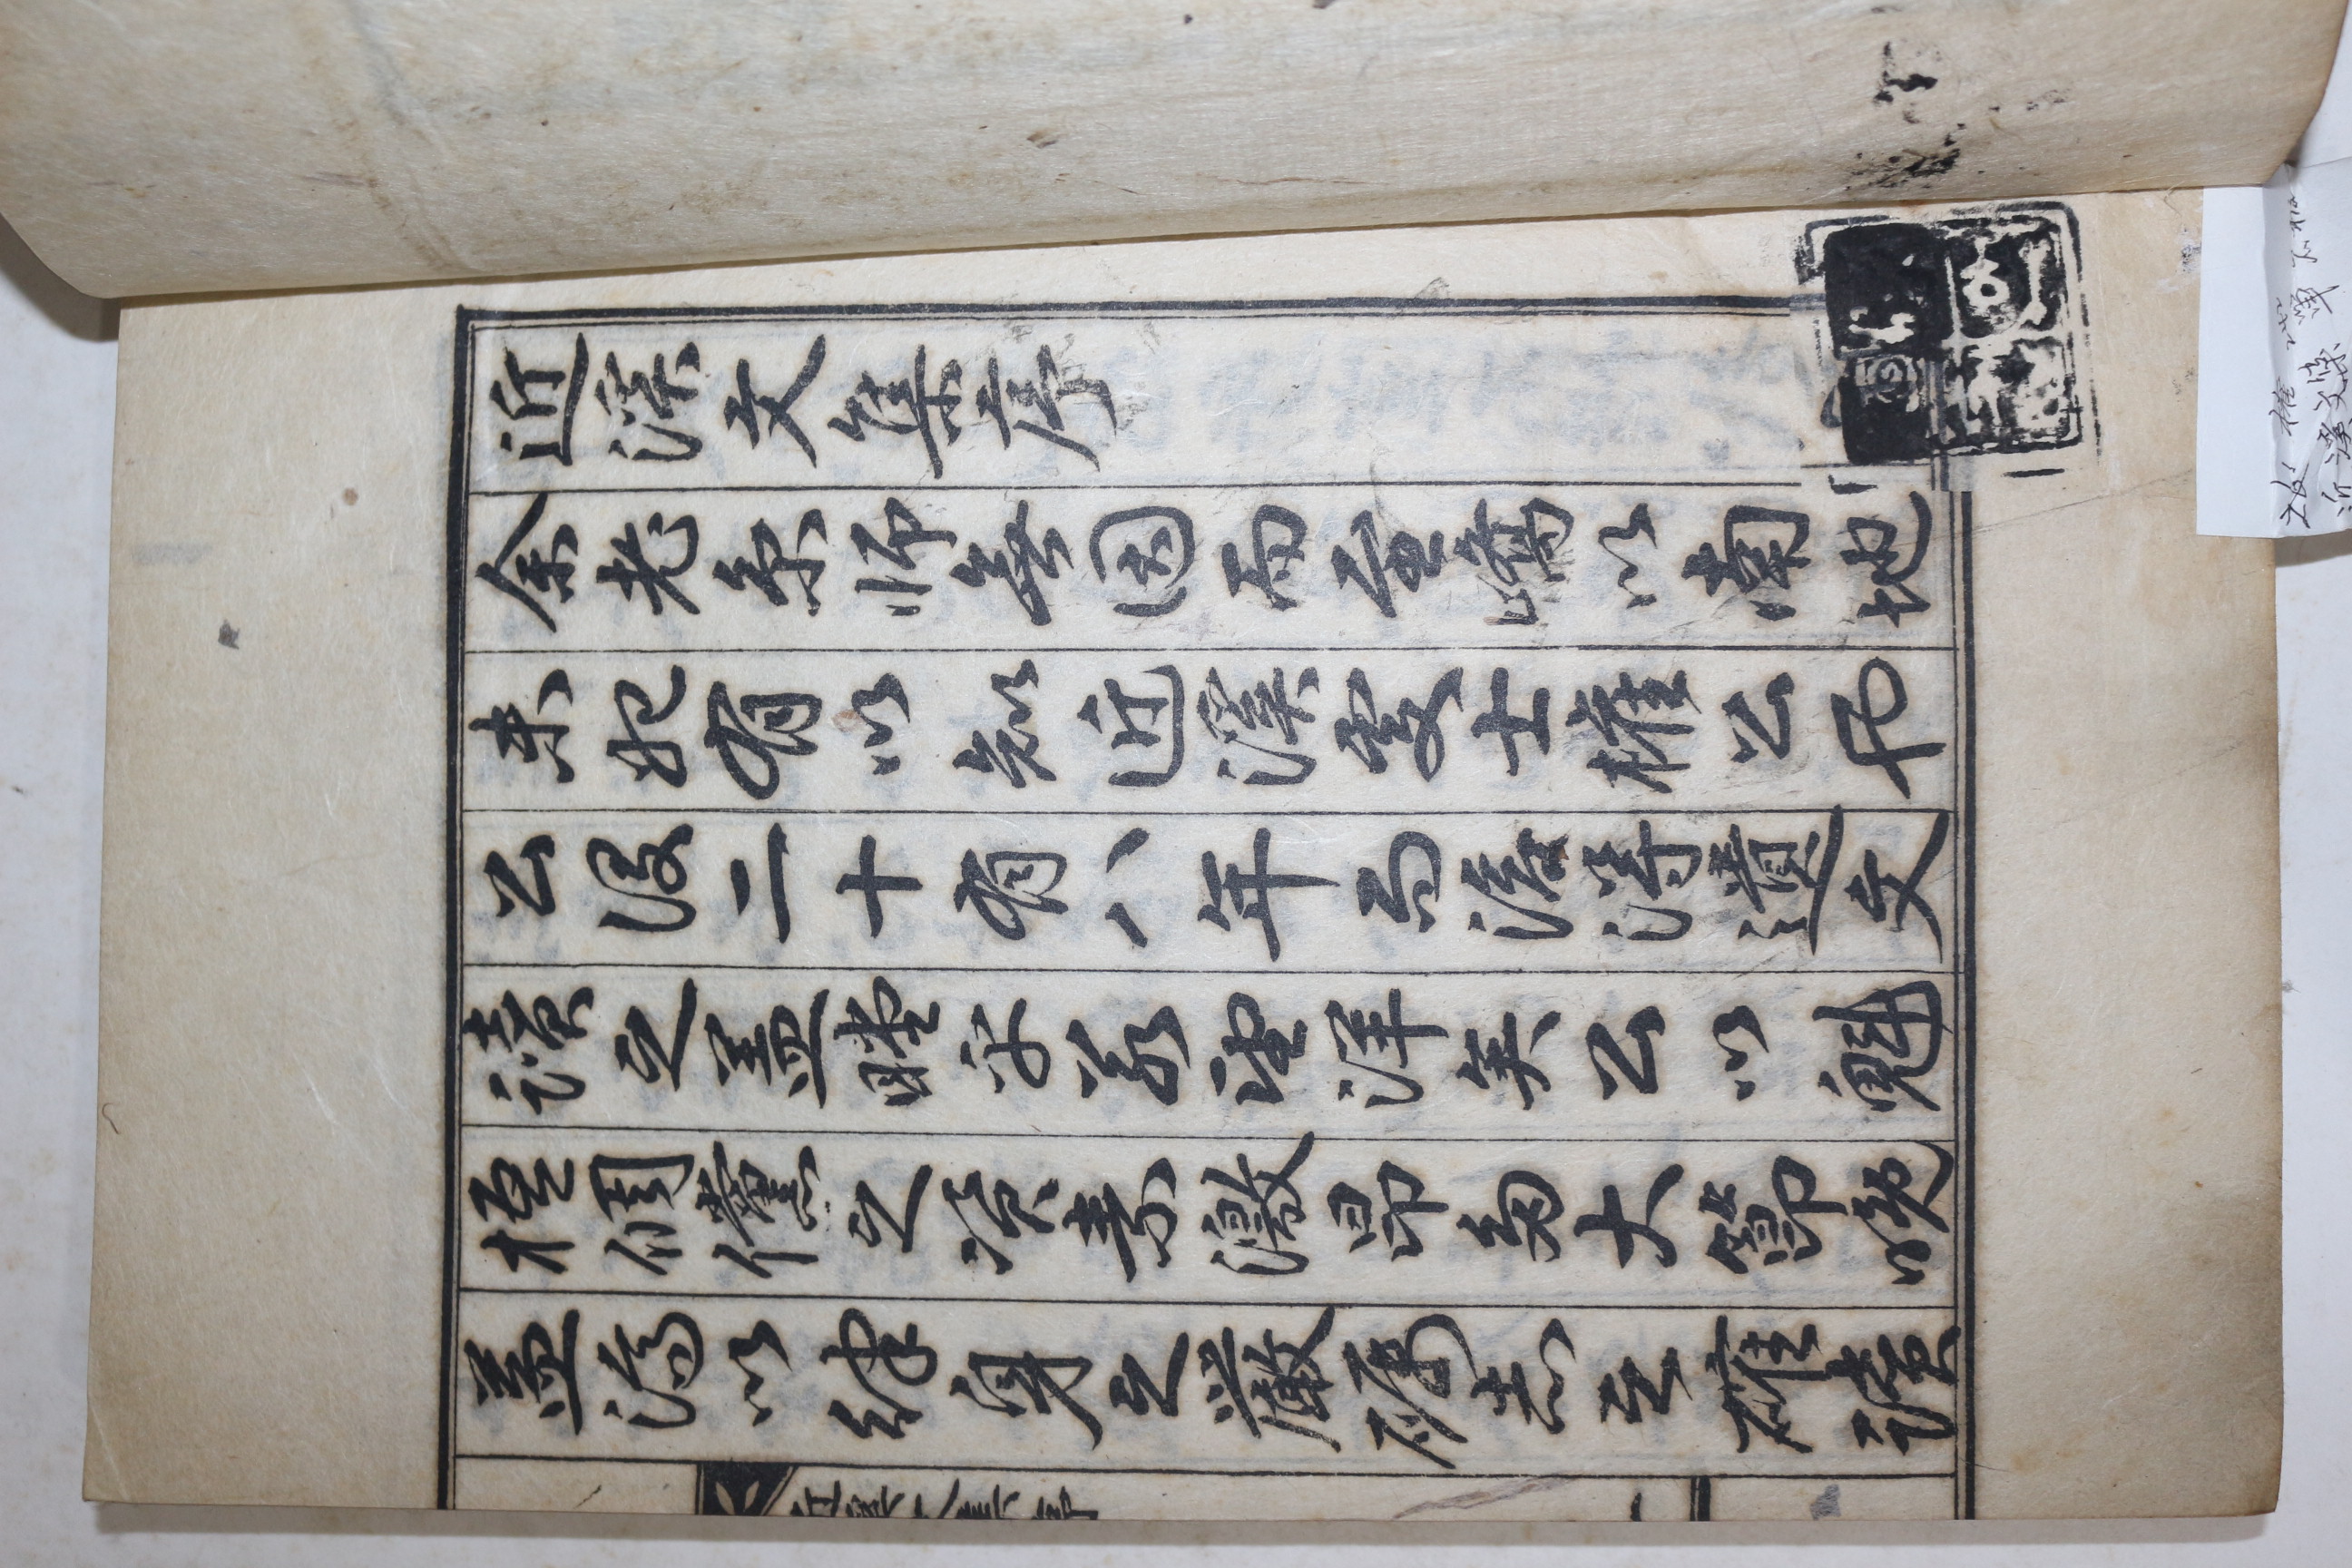 近溪文集序
余老京師無因而至嶠以南地
未始有以知近溪處士權公也
公沒二十有八年而後得遺文
讀之蓋瞠乎若望洋矣公以魁
梧倜儻之資素激昂多大節晚
益濟以律身之嚴礪志之確讀
近溪文集 單